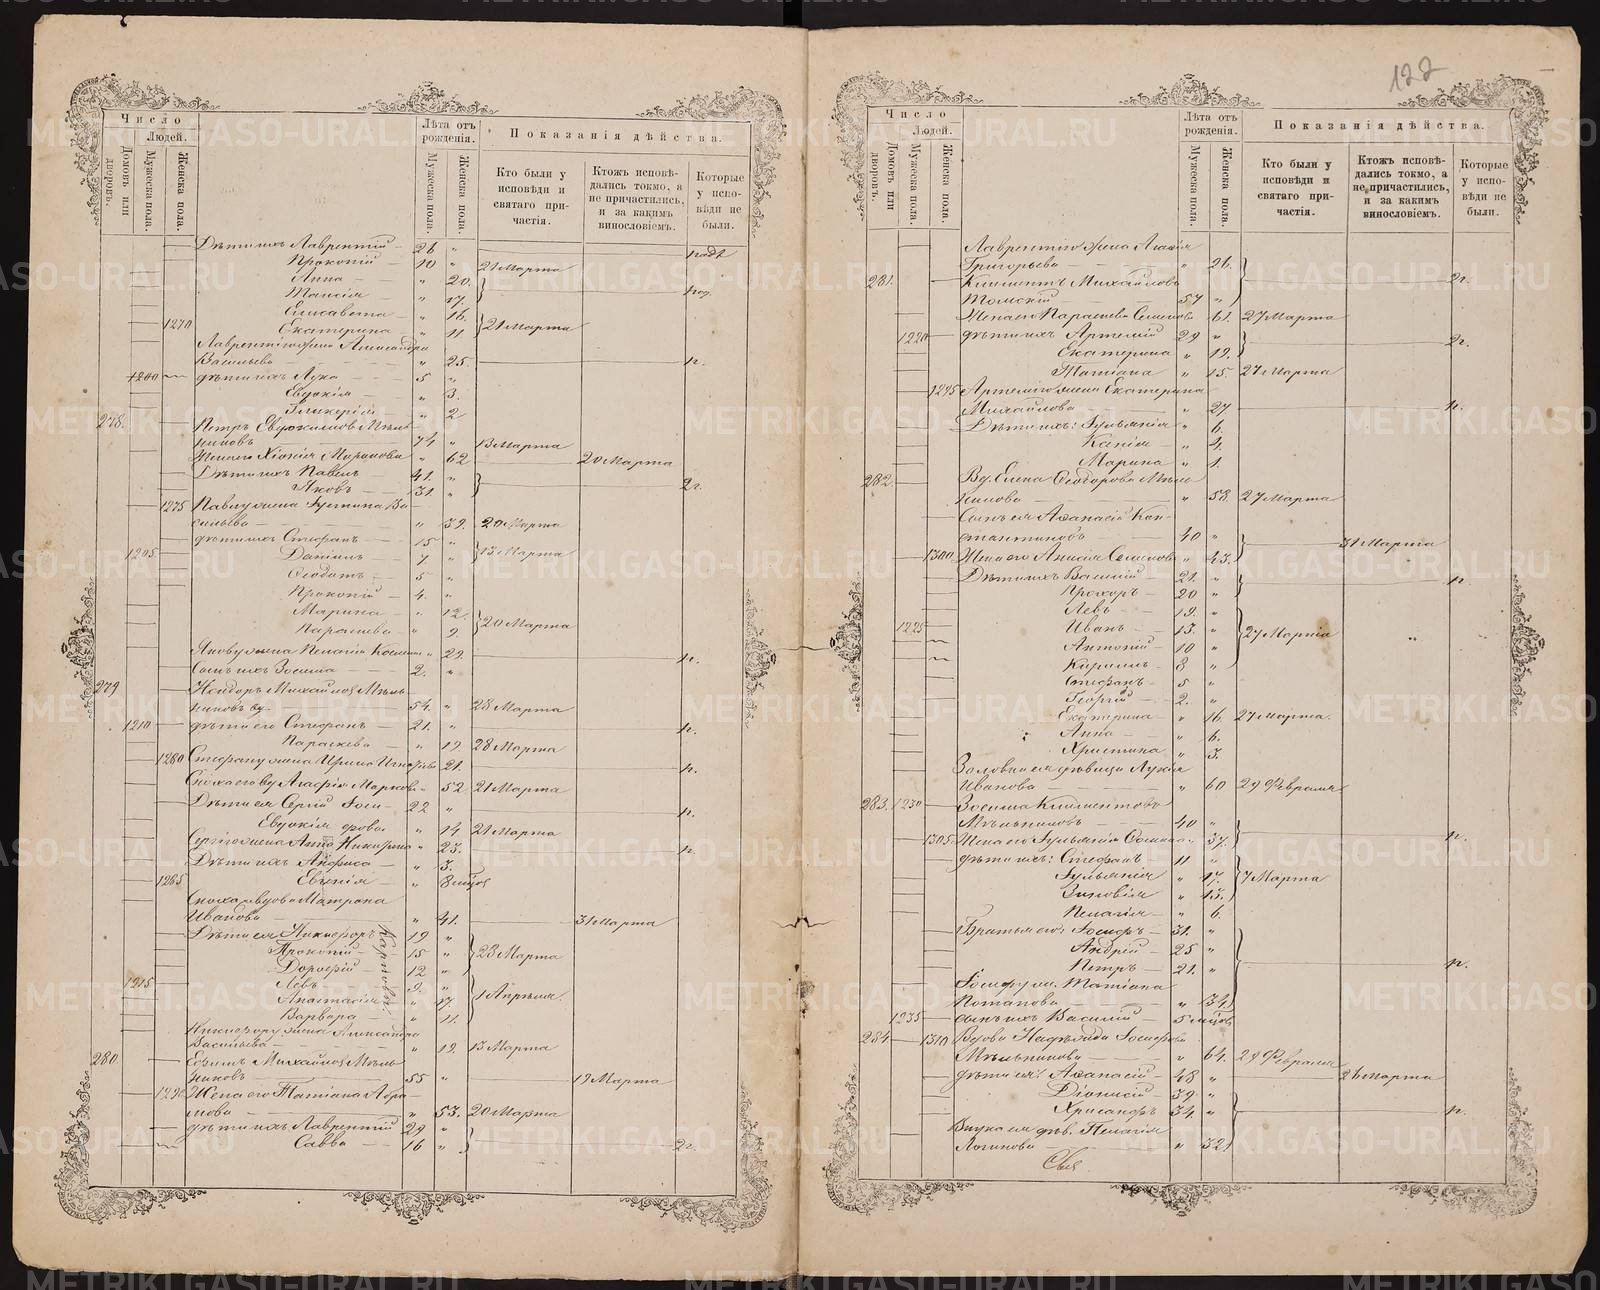 122
Число
Людей.
Домовъ или дворовъ.
Мужеска пола.
Женска пола.
Лѣта отъ рожденія.
Мужеска пола.
Женска пола.
Показанія дѣйства.
Кто были у исповѣди и святаго причастія.
Ктожъ исповѣдались токмо, а не причастились, и за какимъ винословіемъ.
Которые у исповѣди не были.
Дѣти ихъ Лаврентій 26 "
Прокопій 10 " 21 Марта
Анна " 20.
Таисія " 17.
Елисавета " 16.
1270 Екатерина " 11 21 Марта
Александра
Васильева " 25. п.
1200 дѣти ихъ Лука 5 "
Евдокія " 3.
Гликерія " 2
278. Петръ Евдокимовъ Мѣль
никовъ 74 " 13 Марта
Жена его Хіонія Миронова " 62 20 Марта
Дѣти ихъ Павелъ 41. "
Яковъ 31. " 2г.
1275 Павлу жена Ва-
сильева " 39. 20 Марта
дѣти ихъ Стефанъ 15 "
1205. Даніилъ 7 " 13 Марта
Ѳеодотъ 5 "
Прокопій 4 "
Марина " 12.
Параскева " 9. 20 Марта
Якову жена Пелагія " 29. п.
Сынъ ихъ Зосима 2. "
279 Михайловъ Мѣль
никовъ вд. 54. " 28 Марта
1210 дѣти его Стефанъ 21. " п.
Параскева " 19. 28 Марта
1280 Стефану жена Ирина " 21. п.
Сноха его вд. Агафія Маркова " 52 21 Марта
Дѣти ея Сергій 22 " п.
Евдокія " 14. 21 Марта
жена Анна " 23. п.
Дѣти ихъ Анфиса " 3.
1285 Евгенія " 8 мцовъ
Сноха вдова Матрона
Иванова " 41. 31 Марта
Дѣти ея Никифоръ 19 "
Прокопій 15 " 28 Марта
Дороѳій 12 "
1215 Левъ 9. "
Анастасія " 17. 1 Апрѣля.
Варвара " 11.
Карповы
Никифору жена Александра
Васильева " 19. 13 Марта
280. Ефимъ Михайловъ Мѣль
никовъ 55 " 19 Марта
1290 Жена его Татіана Абра-
мова " 53. 20 Марта
дѣти ихъ Лаврентій 29 "
Савва 16 " 2г.
Число
Людей.
Домовъ или дворовъ.
Мужеска пола.
Женска пола.
Лѣта отъ рожденія.
Мужеска пола.
Женска пола.
Показанія дѣйства.
Кто были у исповѣди и святаго причастія.
Ктожъ исповѣдались токмо, а не причастились, и за какимъ винословіемъ.
Которые у исповѣди не были.
Лаврентію жена Агафія
Григорьева " 26.
281. Климентъ Михайловъ 2г.
Томскій 57 "
Жена его Параскева Семенова " 61. 27 Марта
1220 дѣти ихъ Артемій 29 " 2г.
Екатерина " 19.
Татіана " 15. 27 Марта
1295 Артемію жена Екатерина
Михайлова " 27 п.
Дѣти ихъ: Іульянія " 6.
" 4.
Марина " 1.
282. Вд. Елена Ѳеодорова Мѣль
никова " 58. 27 Марта
Сынъ ея Аѳанасій Кон-
стантиновъ 40 "
1300 Жена его Анисія Семенова " 43. 31 Марта
Дѣти ихъ Василій 21. " п.
Прохоръ 20 "
Левъ 19. "
1225 Иванъ 13. " 27 Марта "
Антоній 10 "
Кириллъ 8 "
Стефанъ 5 "
Георгій 2. "
Екатерина " 16. 27 Марта.
Анна " 6.
Христина " 3.
Золовка ея дѣвица Лукія
Иванова " 60 29 Февраля
283. 1230 Зосима Климентовъ
Мѣльниковъ 40 "
1305 Жена его Іульянія " 37. п.
дѣти ихъ: Стефанъ 11 "
Іульянія " 17. 7 Марта
Зиновія " 13.
Пелагія " 6.
Братья его: Іосифъ 31. "
Андрей 25 "
Петръ 21. " п.
Іосифу ж. Татіана
Потапова " 34.
1235 сынъ ихъ Василій 5 мцовъ
284 1310 Вдова Надежда Іосифова
Мѣльникова " 64. 29 Февраля
дѣти ея: Аѳанасій 48 " 26 Марта
Діонисій 39. "
Хрисанфъ 34. " п.
Внука ея дѣв. Пелагія
Логинова " 32